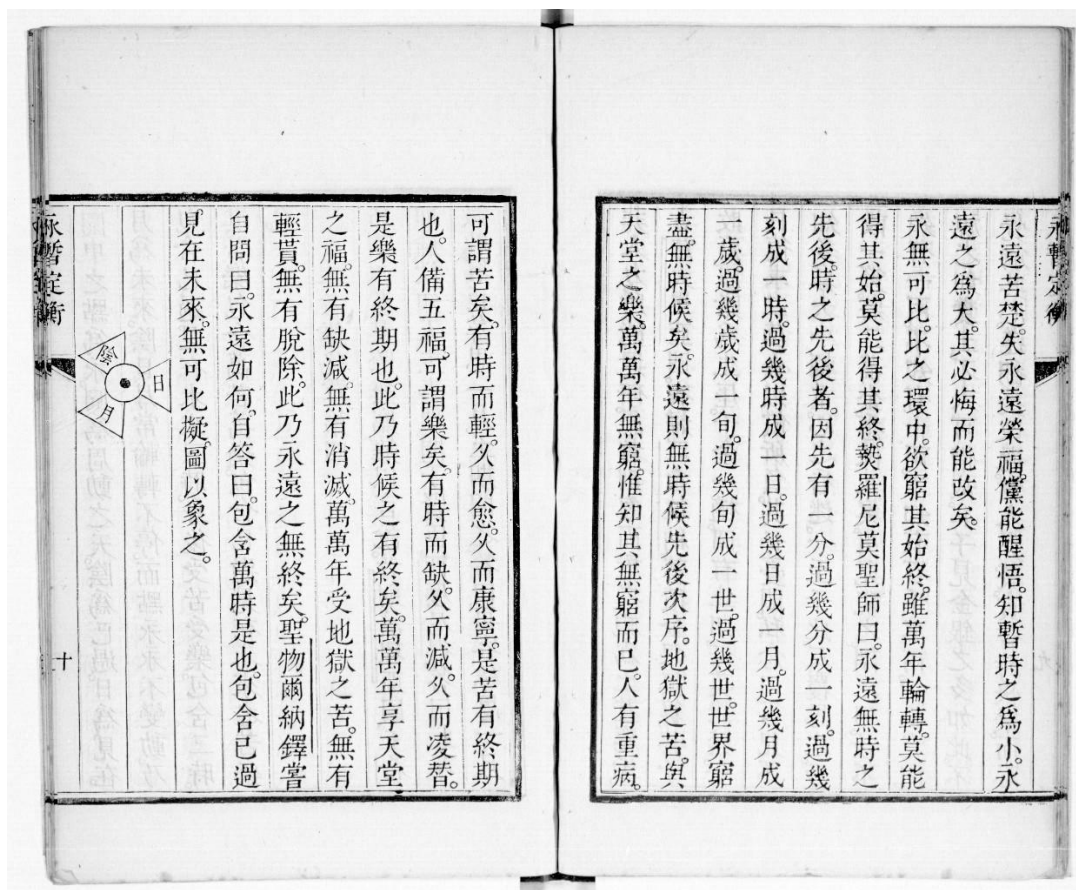 永暫定衡
永遠苦楚。失永遠榮福。儻能醒悟。知暫時之爲小。永
遠之爲大。其必悔而能改矣。
永無可比。比之環中。欲窮其始終。雖萬年輪轉。莫能
得其始。莫能得其終。熱羅尼莫聖師曰。永遠無時之
先後。時之先後者。因先有一分。過幾分成一刻。過幾
刻成一時。過幾時成一日。過幾日成一月。過幾月成
一歲。過幾歲成一旬。過幾旬成一世。過幾世。世界窮
盡。無時候矣。永遠則無時候先後次序。地獄之苦。與
天堂之樂。萬萬年無窮。惟知其無窮而已。人有重病。
可謂苦矣。有時而輕。久而愈。久而康寧。是苦有終期
也。人備五福。可謂樂矣。有時而缺。久而減。久而凌替。
是樂有終期也。此乃時候之有終矣。萬萬年享天堂
之福。無有缺減。無有消滅。萬萬年受地獄之苦。無有
輕貰。無有脫除。此乃永遠之無終矣。聖物爾納鐸嘗
自問曰。永遠如何。自答曰。包含萬時是也。包含已過
見在未來。無可比擬。圖以象之。
陰
日
月
永暫定衡
十